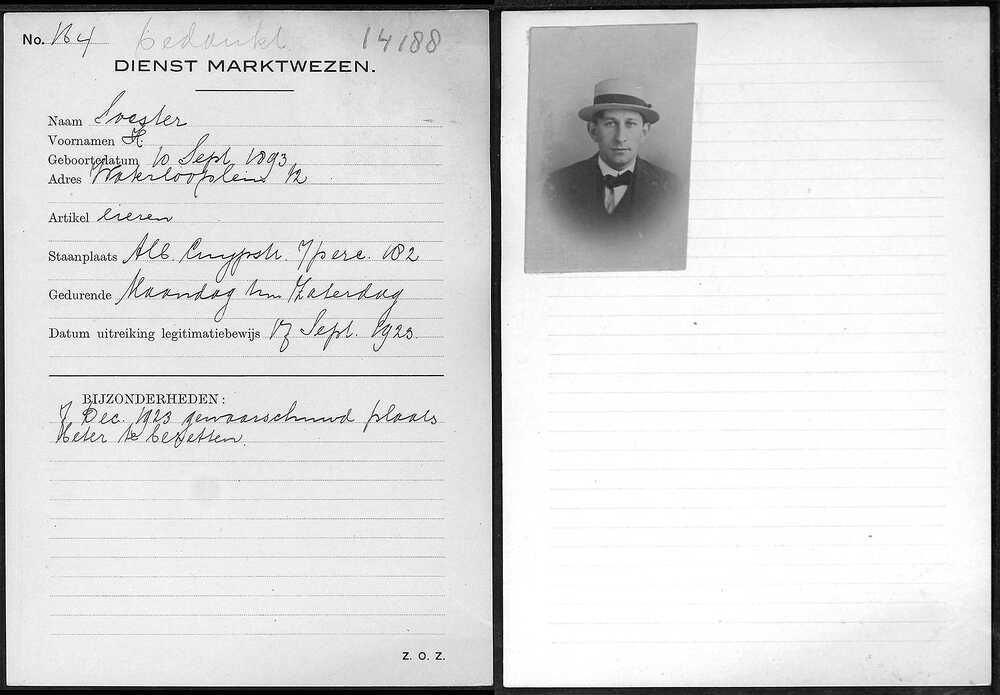 No. 184 bedankt 14188
DIENST MARKTWEZEN.
Naam Soester
Voornamen H.
Geboortedatum 10 Sept. 1893
Adres Waterlooplein 12
Artikel eieren
Staanplaats Alb. Cuypstr. t/perc. 182
Gedurende Maandag t/m Zaterdag
Datum uitreiking legitimatiebewijs 17 Sept. 1923.
BIJZONDERHEDEN:
7 Dec. 1923 gewaarschuwd plaats
beter te bezetten.
Z. O. Z.